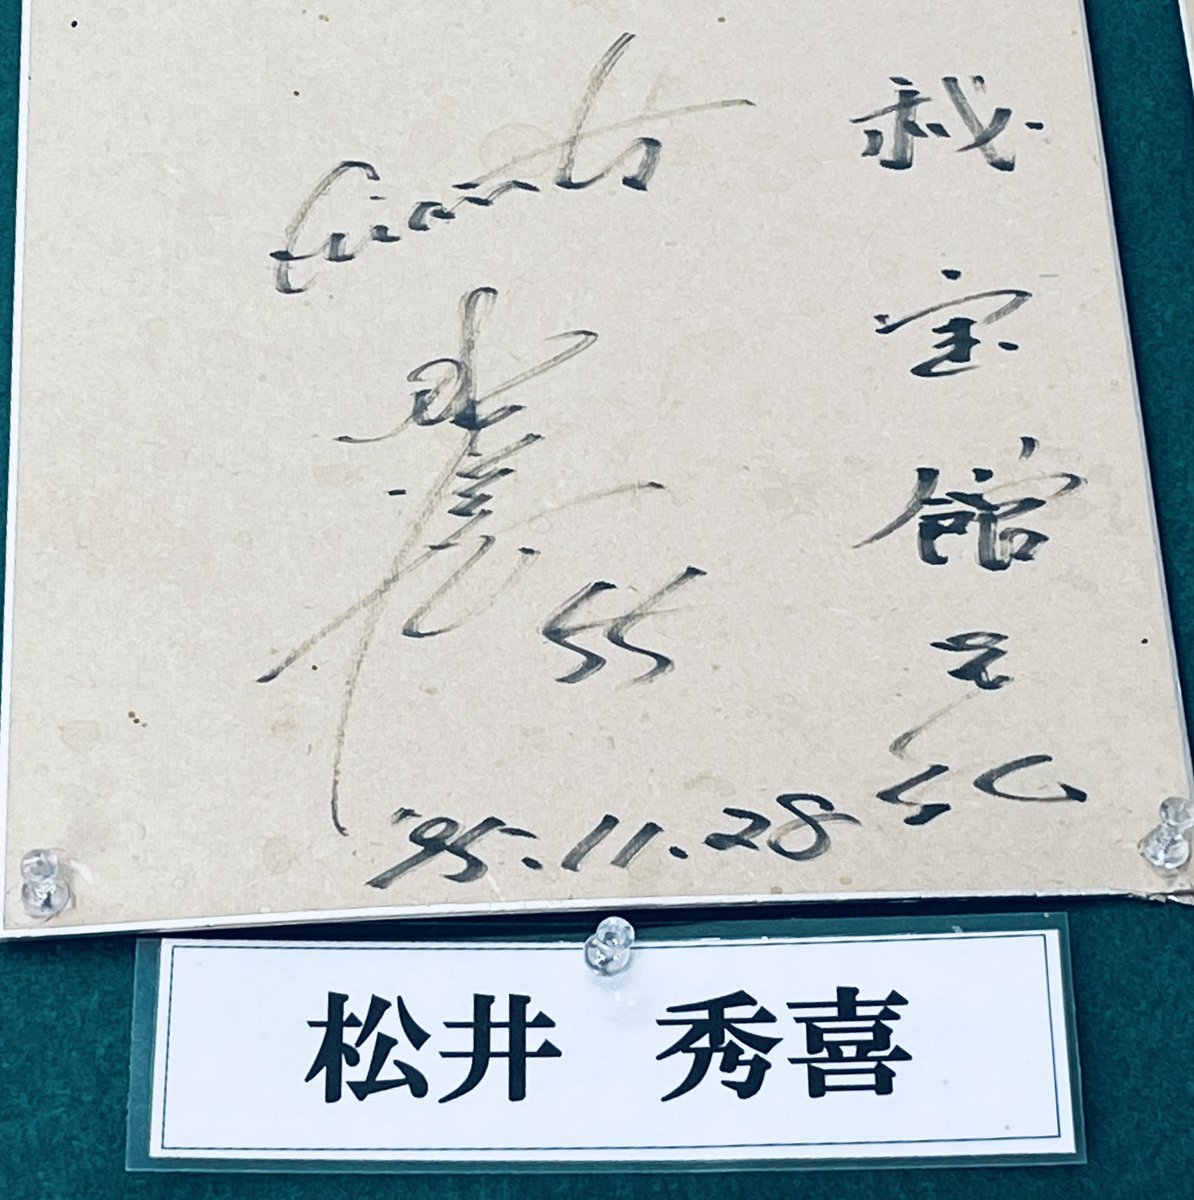 秘宝館
Giants
55
'95.11.28
松井 秀喜